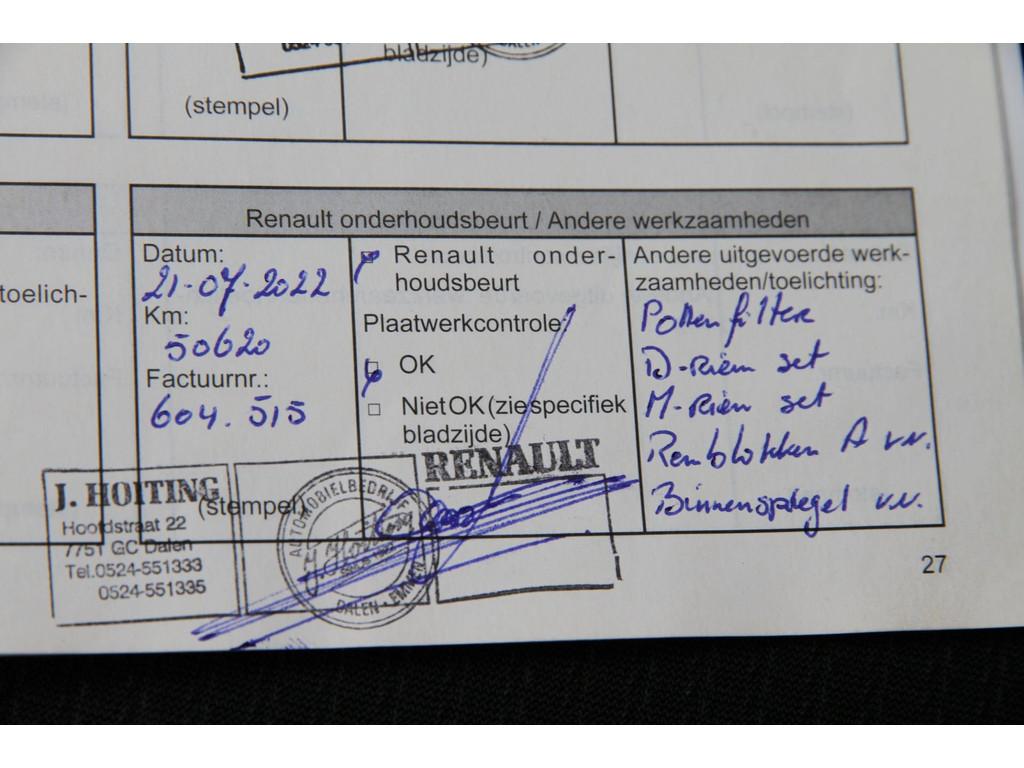 bladzijde)
DALEN
(stempel)
toelich-
Renault onderhoudsbeurt / Andere werkzaamheden
Datum:
21-07-2022
Km:
50620
Factuurnr.:
604.515
Renault onder-
houdsbeurt
Plaatwerkcontrole:
OK
Niet OK (zie specifiek
bladzijde)
Andere uitgevoerde werk-
zaamheden/toelichting:
Pollenfilter
D-Riem set
M-Riem set
Remblokken A v.v.
Binnenspiegel v.v.
(stempel)
J. HOITING
Hoofdstraat 22
7751 GC Dalen
Tel.0524-551333
0524-551335
AUTOMOBIELBEDRIJF
DALEN - EMMEN
RENAULT
27